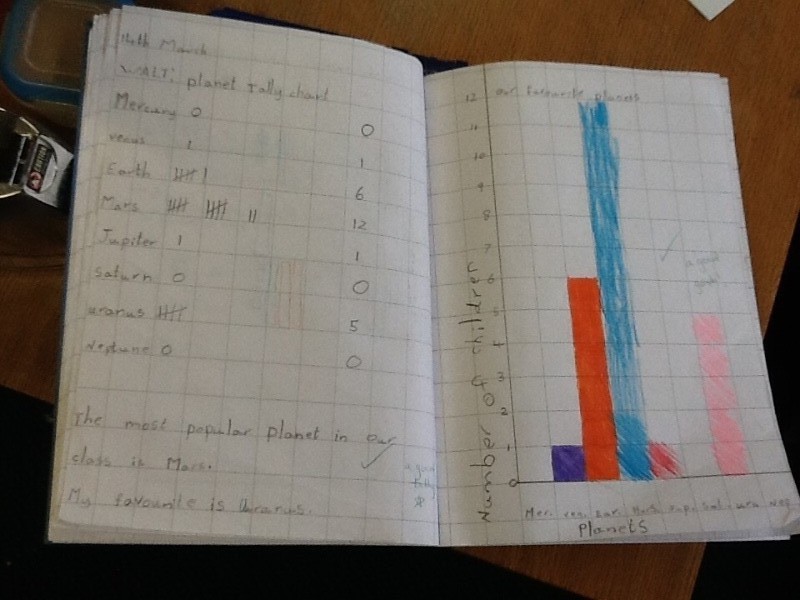 14th March
WALT: planet tally chart
Mercury 0 0
venus 1 1
Earth 6
Mars 12
Jupiter 1 1
saturn 0 0
uranus 5
Neptune 0 0
The most popular planet in our
class is Mars.
My favourite is Uranus.
a good
tally
our favourite planets
12
11
10
9
8
7
6
5
4
3
2
1
0
Number of children
a good
graph
Mer. ven. Ear. Mars. Jup. Sat. ura. Nep
Planets